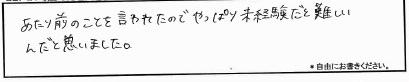 あたり前のことを言われたのでやっぱり未経験だと難しい
んだと思いました。
*自由にお書きください。